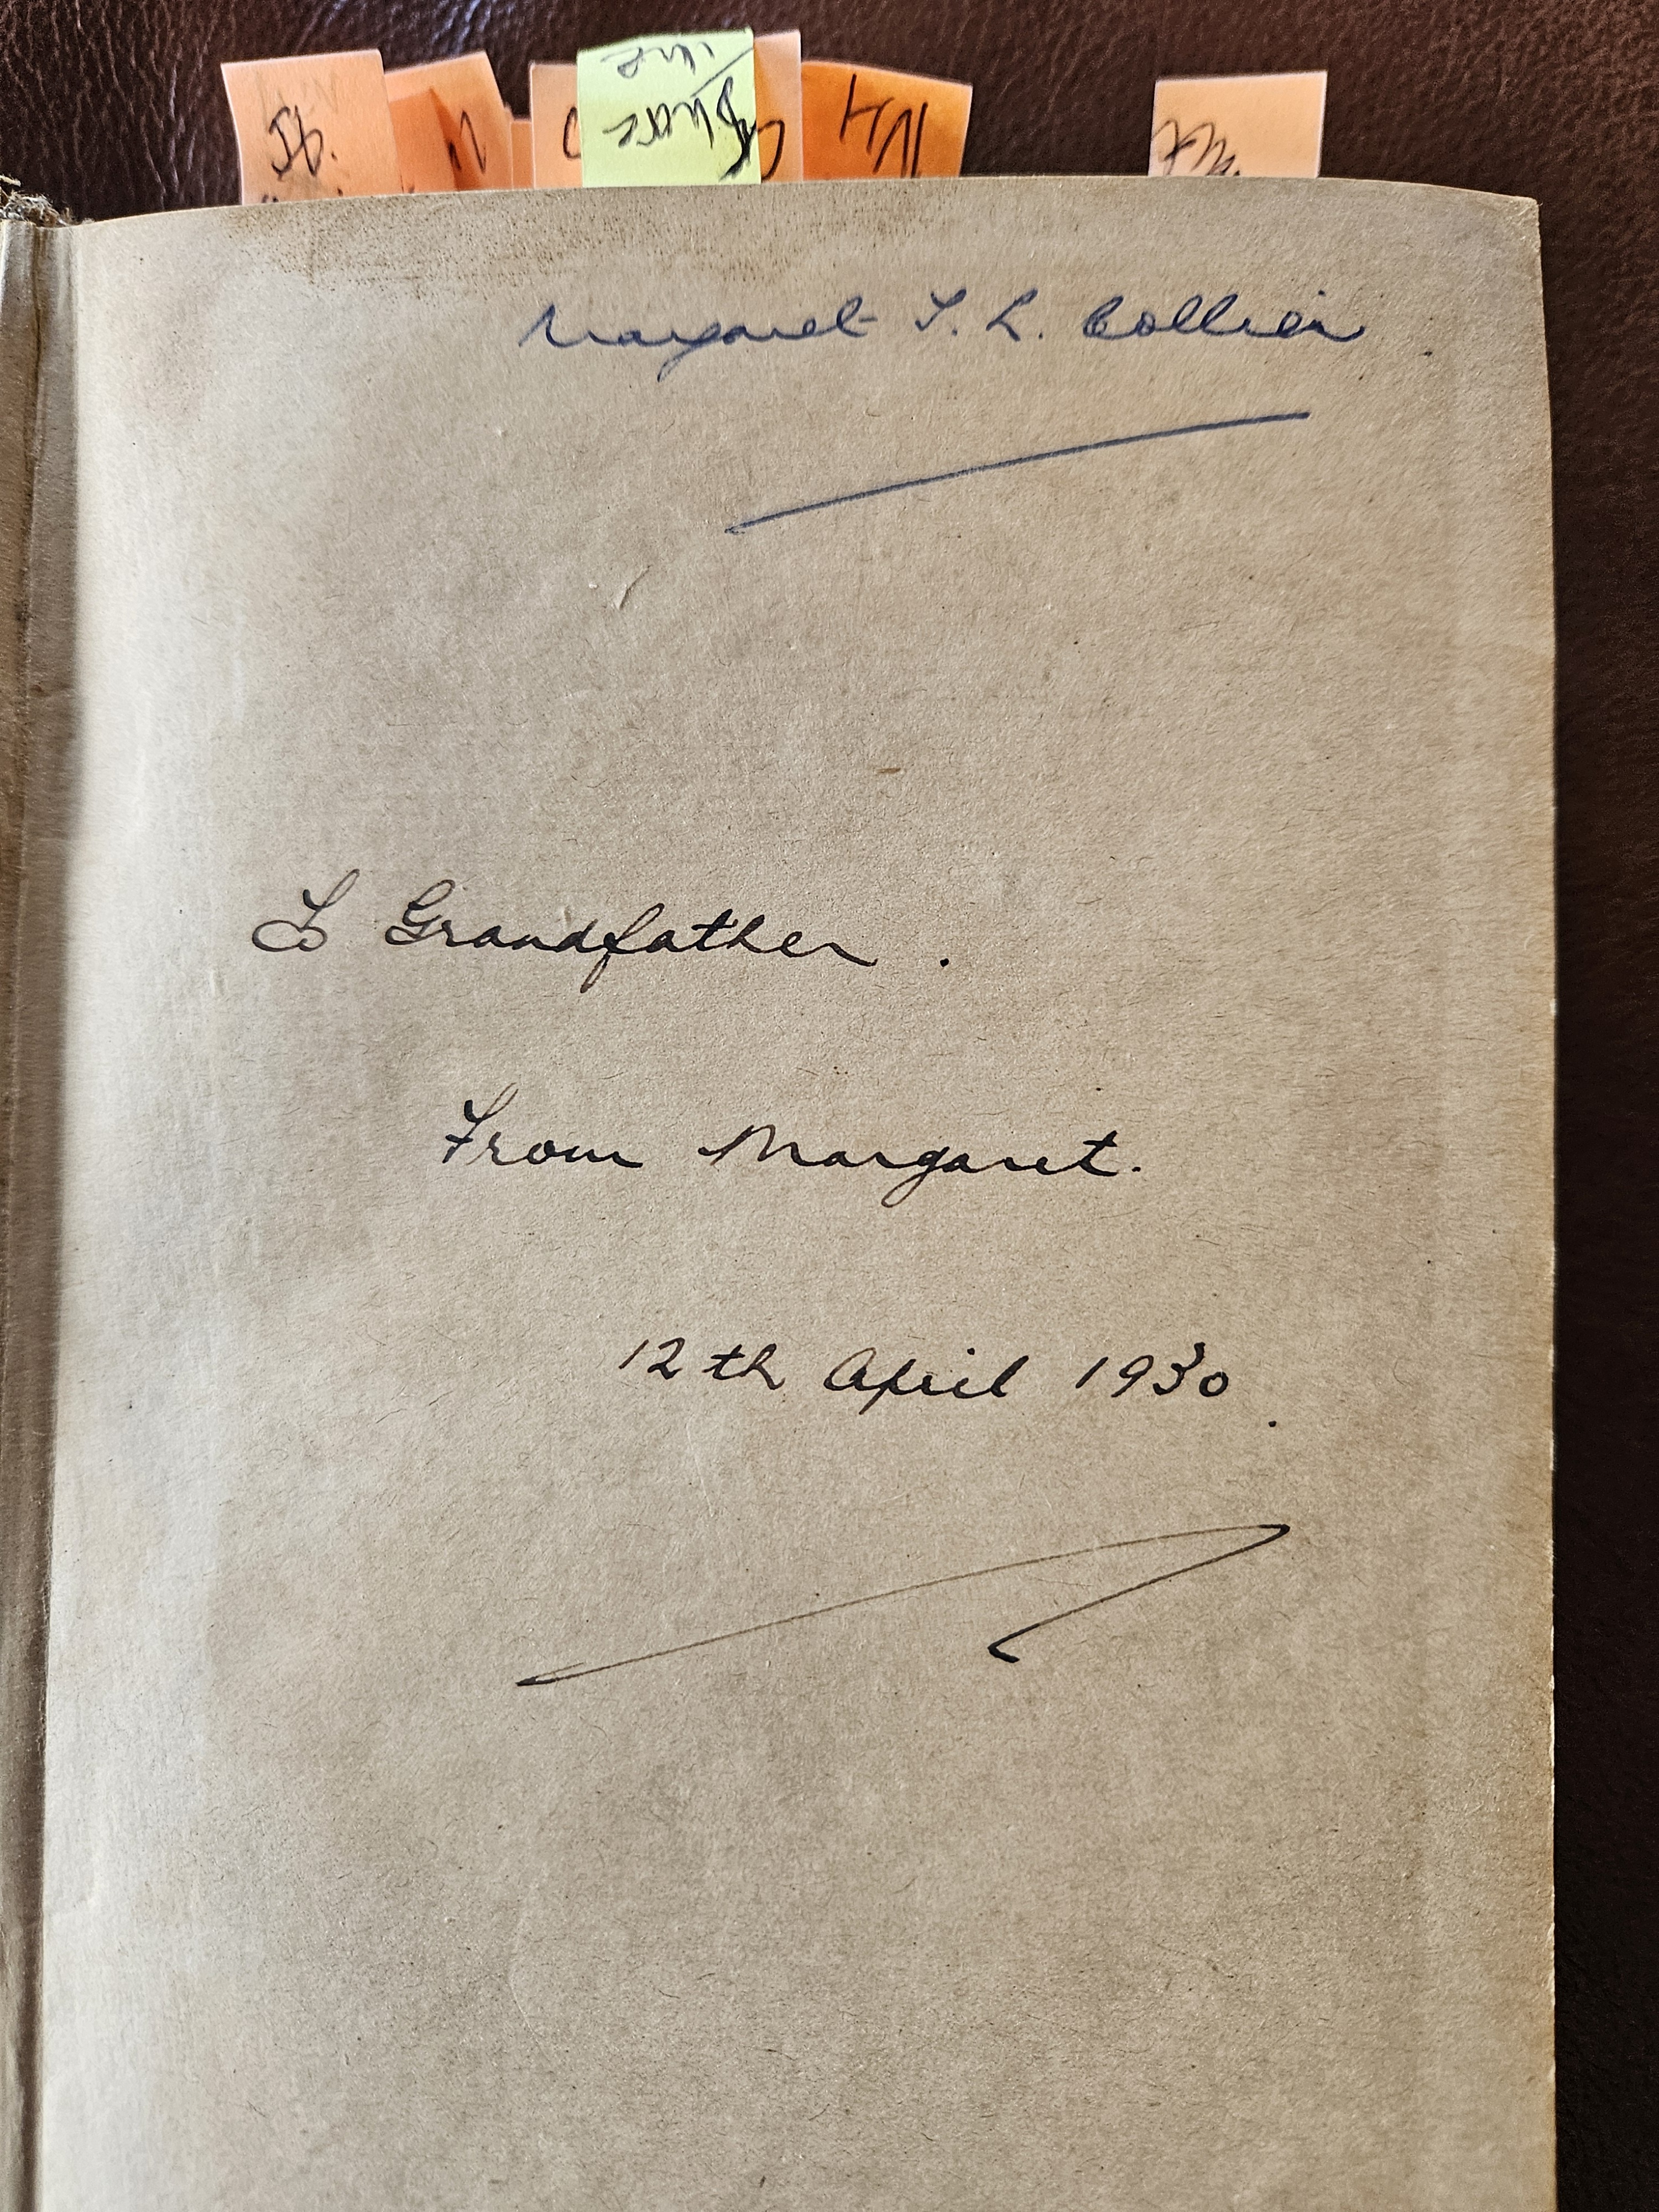 Margaret T. L. Collier
To Grandfather.
From Margaret.
12th April 1930.